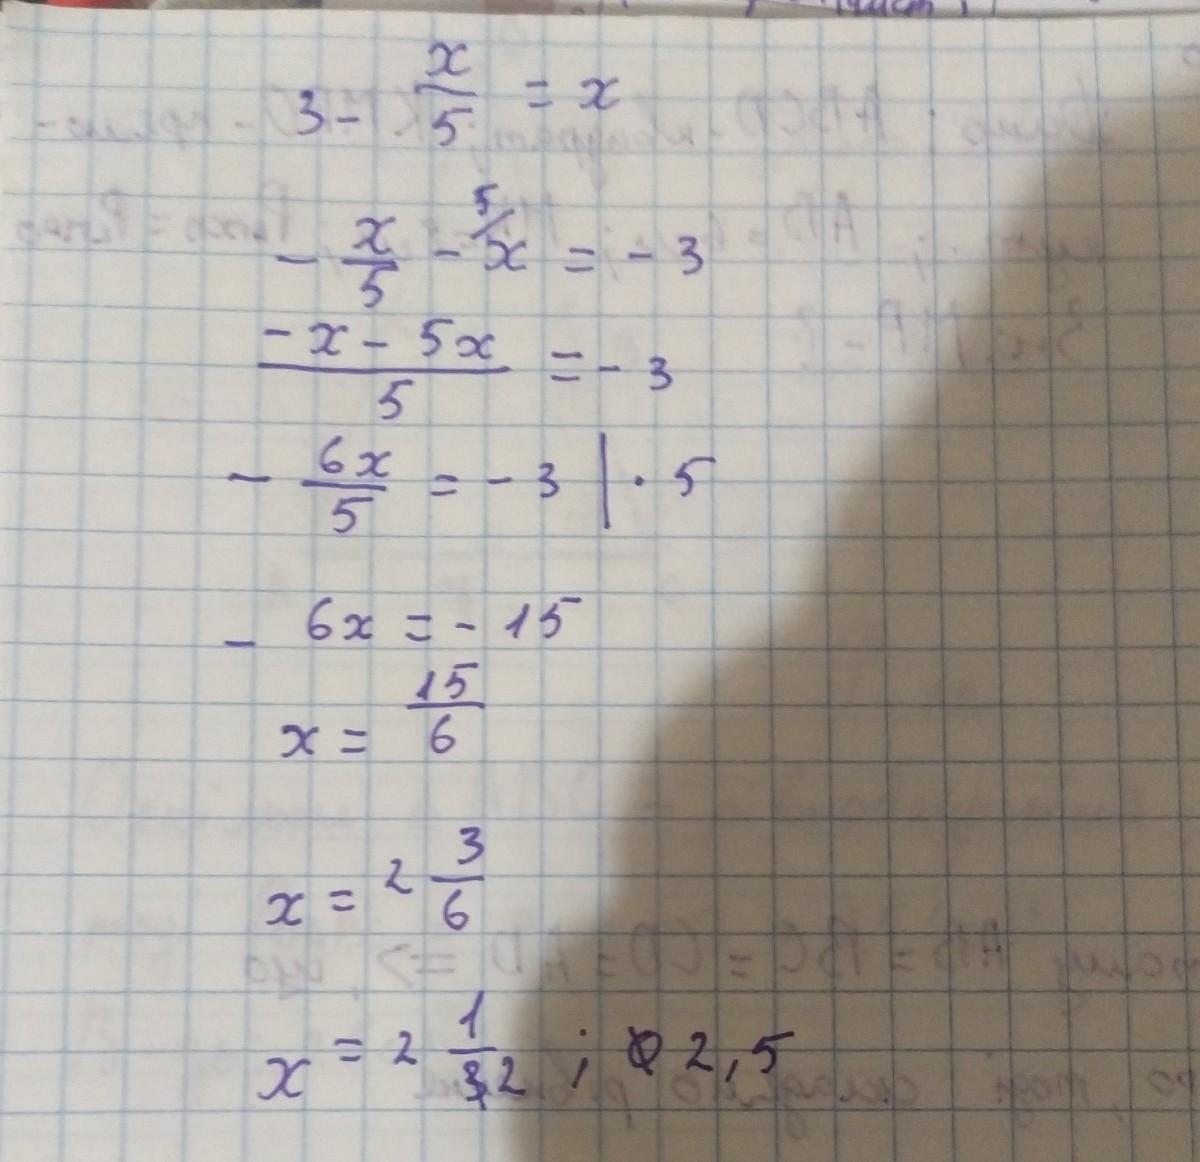 3 - x/5 = x
- x/5 - 5/x = - 3
- x - 5x / 5 = - 3
- 6x/5 = - 3 | · 5
- 6x = - 15
x = 15/6
x = 2 3/6
x = 2 1/2 ; 2,5